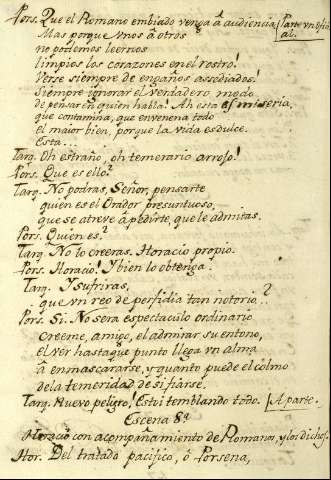 Pors. Que el Romano embiado venga á audiencia. [Parte vn Ofici
al.
Mas porque vnos á otros
no podemos leernos
limpios los corazones en el rostro!
Verse siempre de engaños assediados!
Siempre ignorar el verdadero modo
de pensar en quien habla! Ah esta es miseria,
que contamina, que envenena todo
el maior bien, porque la vida es dulce.
Esta...
Tarq. Oh estraño, oh temerario arrojo!
Pors. Que es ello?
Tarq. No podras, Señor, pensarte
quien es el Orador presuntuoso,
que se atreve á pedirte, que le admitas.
Pors. Quien es?
Tarq. No lo creeras. Horacio propio.
Pors. Horacio! Y bien lo obtenga.
Tarq. Y sufriras,
que vn reo de perfidia tan notorio..?
Pors. Si. No sera espectaculo ordinario
creeme, amigo, el admirar su entono,
el ver hasta que punto llega vn alma
á enmascararse, y quanto puede el colmo
de la temeridad de si fiarse.
Tarq. Nuevo peligro! Estoi temblando todo. [Aparte.
Escena 8ª
Horacio con acompañamiento de Romanos, y los dichos.
Hor. Del tratado pacifico, ó Porsena,